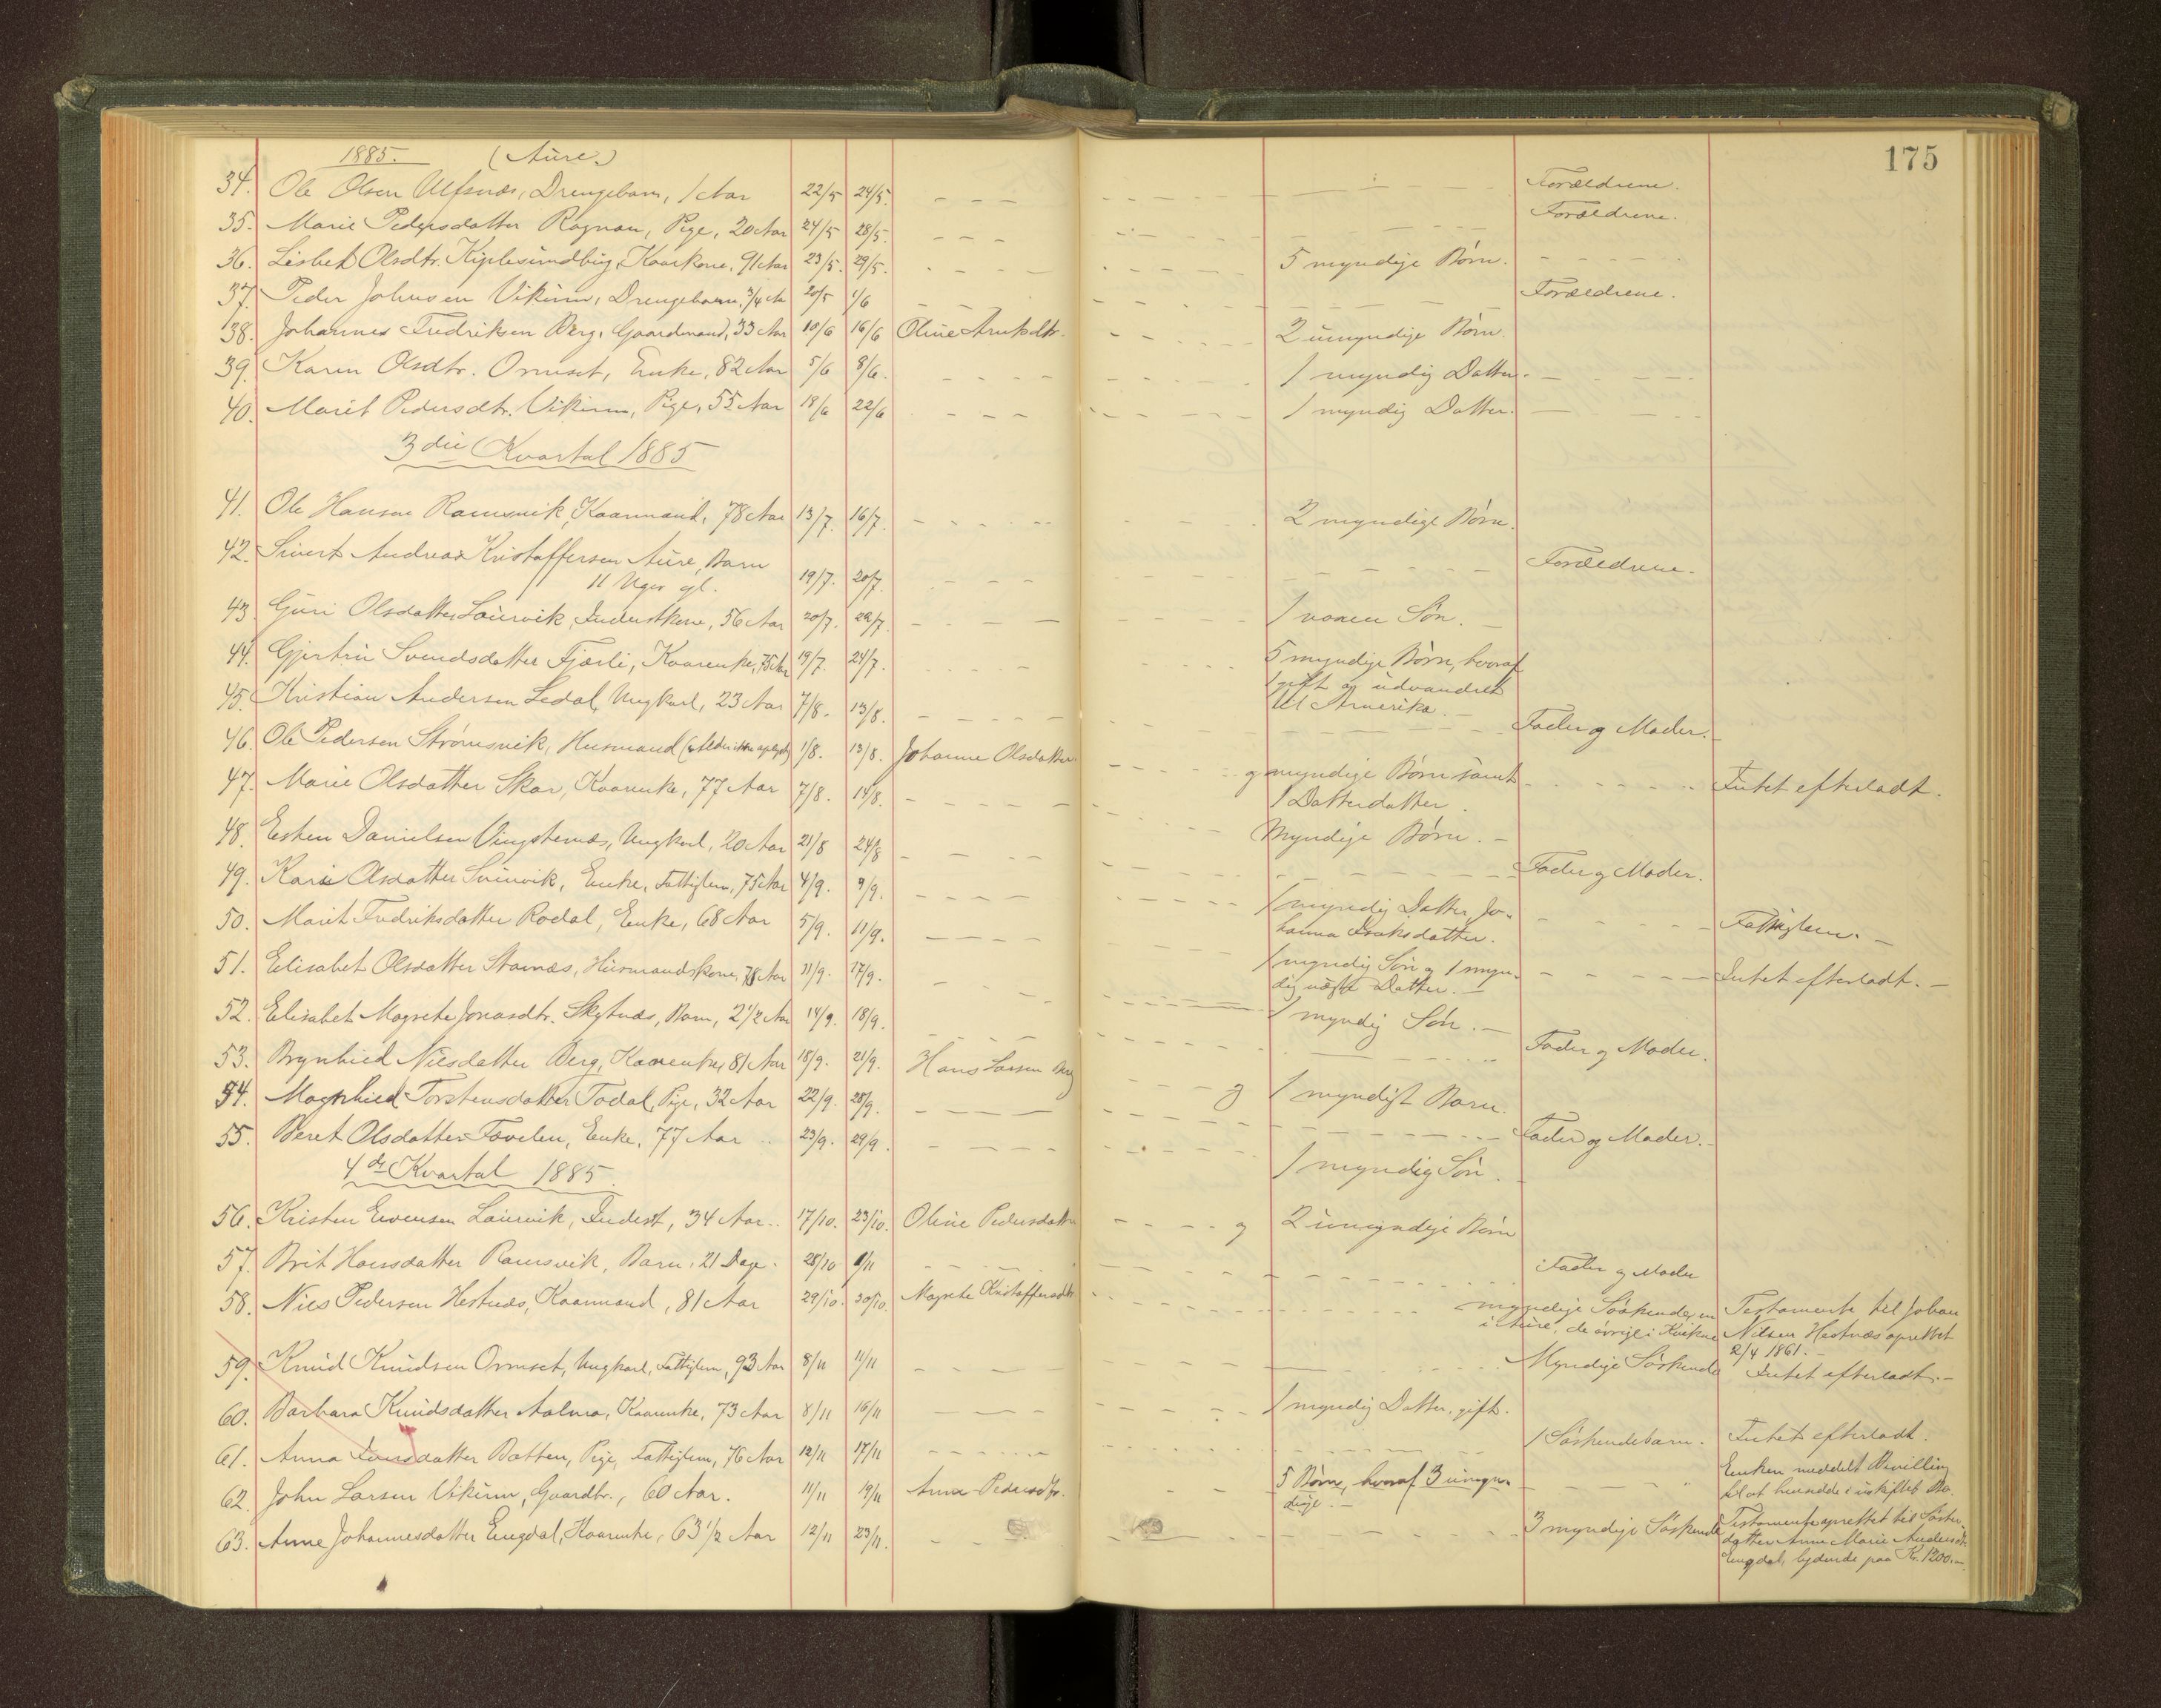 175
1885. (Aure.)
34. Ole Olsen Ulfsnæs, Drengebarn, 1 Aar 22/5 24/5. Forældrene.
35. Marie Pedersdatter Rognan, Pige, 20 Aar 24/5 28/5. Forældrene.
36. Lisbet Olsdtr. Kiplesundbug, Kaarkone, 91 Aar 23/5. 29/5. 5 myndige Børn.
37. Peder Johnsen Vikum, Drengebarn, 3/4 A 20/5 1/6 Forældrene.
38. Johannes Fredriksen Berg, Gaardmand, 33 Aar 10/6 16/6 Oline Arntsdtr. 2 umyndige Børn.
39. Karen Olsdtr. Ormset, Enke, 82 Aar 5/6 8/6. 1 myndig Datter.
40. Marit Pedersdtr. Vikum, Pige, 55 Aar 18/6 22/6 1 myndig Datter.
3die Kvartal 1885
41. Ole Hansen Ramsvik, Kaarmand, 78 Aar 13/7. 16/7. 2 myndige Børn.
42. Sivert Andreas Kristoffersen Aure, Barn
11 Uger gl. 19/7. 20/7. Forældrene.
43. Guri Olsdatter Laurvik, Inderstkone, 56 Aar 20/7. 22/7. 1 voxen Søn.
44. Gjertru Svendsdatter Fjærli, Kaarenke, 75 Aar 19/7. 24/7. 5 myndige Børn, hvoraf
1 gift og udvandret
til Amerika.
45. Kristian Andersen Ledal, Ungkarl, 23 Aar 7/8. 13/8. Fader og Moder.
46. Ole Pedersen Strømsvik, Husmand (Alder ikke oplyst) 1/8. 13/8. Johanne Olsdatter og myndige Børn samt
1 Datterdatter. Intet efterladt.
47. Marie Olsdatter Skar, Kaarenke, 77 Aar 7/8. 14/8. Myndige Børn.
48. Esten Danielsen Vingstenæs, Ungkarl, 20 Aar 21/8 24/8 Fader og Moder.
49. Kari Olsdatter Svinvik, Enke, Fattiglem, 75 Aar 4/9. 9/9. 1 myndig Datter, Jo-
hanna Isaksdatter. Fattiglem.
50. Marit Fredriksdatter Rodal, Enke, 68 Aar 5/9. 11/9. 1 myndig Søn og 1 myn-
dig ugift Datter. Intet efterladt.
51. Elisabet Olsdatter Stavnæs, Husmandskone, 78 Aar 11/9. 17/9. 1 myndig Søn.
52. Elisabet Magrete Jonasdtr. Skytnæs, Barn, 2 1/2 Aar 14/9. 18/9. Fader og Moder.
53. Brynhild Nilsdatter Berg, Kaarenke, 81 Aar 18/9. 21/9. Hans Larsen Berg og 1 myndigt Barn.
54. Magnhild Torstensdatter Todal, Pige, 32 Aar 22/9. 28/9. Fader og Moder.
55. Beret Olsdatter Tovelen, Enke, 77 Aar 23/9. 29/9. 1 myndig Søn.
4de Kvartal 1885.
56. Kristen Evensen Laurvik, Inderst, 34 Aar 17/10. 23/10. Oline Pedersdatter og 2 umyndige Børn
57. Brit Hansdatter Ramsvik, Barn, 21 Dage. 28/10 1/11 Fader og Moder
58. Nils Pedersen Hestnæs, Kaarmand, 81 Aar 29/10. 30/10. Magrete Kristoffersdtr. myndige Søskende, en
i Aure, de øvrige i Kvikne Testamente til Johan
Nilsen Hestnæs oprettet
2/4 1861.
59. Knud Knudsen Ormset, Ungkarl, Fattiglem, 93 Aar 8/11 11/11 Myndige Søskende Intet efterladt.
60. Barbara Knudsdatter Aalmo, Kaarenke, 73 Aar 8/11 16/11 1 myndig Datter, gift.
61. Anna datter Botten, Pige, Fattiglem, 76 Aar 12/11 17/11 1 Søskendebarn. Intet efterladt.
62. John Larsen Vikum, Gaardbr., 60 Aar. 11/11 19/11 Anne Pedersdtr. 5 Børn, hvoraf 3 umyn-
dige. Enken meddelt Bevilling
til at hensidde i uskiftet Bo.
63. Anne Johannesdatter Engdal, Kaarenke, 63 1/2 Aar 12/11 23/11. 3 myndige Søskende Testamente oprettet til Søster-
datter Anne Marie Andersdtr.
Engdal, lydende paa Kr. 1200.